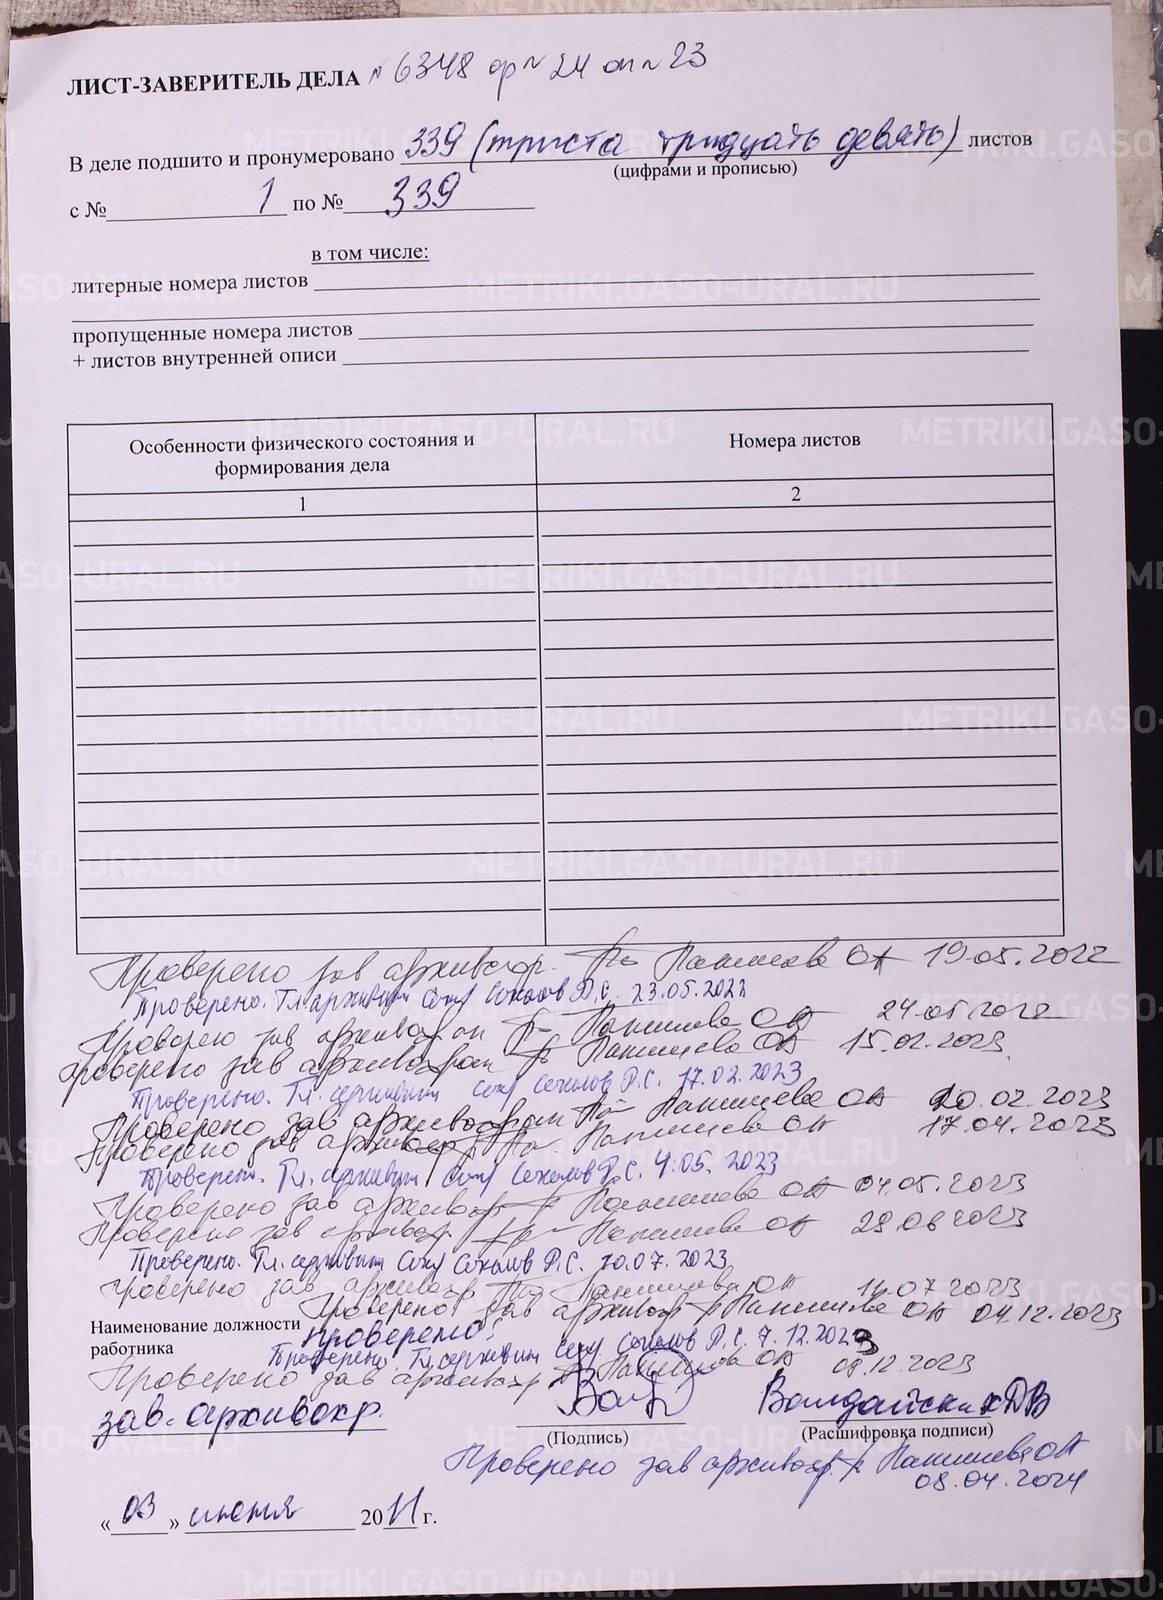 ЛИСТ-ЗАВЕРИТЕЛЬ ДЕЛА № 6348 ф № 24 оп № 23
В деле подшито и пронумеровано 339 (триста тридцать девять) листов
(цифрами и прописью)
с № 1 по № 339
в том числе:
литерные номера листов
пропущенные номера листов
+ листов внутренней описи
Особенности физического состояния и формирования дела
Номера листов
1 2
Проверено зав архивохр. Паншева ОА 19.05.2022
Проверено. Гл. архивист Сокол Соколов Р.С. 23.05.2022
Проверено зав архивохран Паншева ОА 24.05.2022
Проверено зав архивохран Паншева ОА 15.02.2023
Проверено. Гл. архивист Соколов Р.С. 17.02.2023
Проверено зав архивохран Паншева ОА 20.02.2023
Проверено зав архивохр Паншева ОА 17.04.2023
Проверено. Гл. архивист Соколов Р.С. 4.05.2023
Проверено зав архивохр Паншева ОА 04.05.2023
Проверено зав архивохр Паншева ОА 29.06.2023
Проверено. Гл. архивист Соколов Р.С. 10.07.2023
Проверено зав архивохр Паншева ОА 11.07.2023
Проверено зав архивохр Паншева ОА 04.12.2023
Наименование должности
работника
Проверено:
Проверено. Гл. архивист Соколов Р.С. 7.12.2023
Проверено зав архивохр Паншева ОА 08.12.2023
зав. архивохр. Валдайских ДВ
(Подпись) (Расшифровка подписи)
Проверено зав архивохр. Паншева ОА
08.04.2024
«03» июня 2011 г.
METRIKI.GASO-URAL.RU